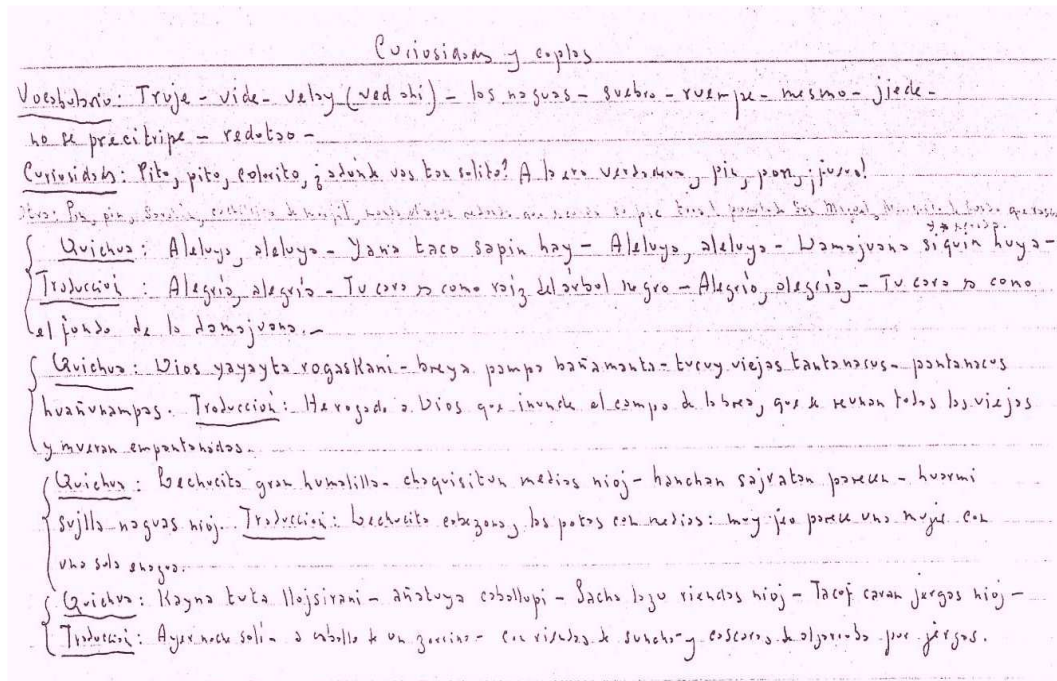 Curiosidades y coplas
Vocabulario: Truje - vide - velay (ved ahi) - las naguas - suebra - ruempe - mesmo - jiede -
no se precitripe - redotao -
Curiosidades: Pito, pito, colorito, ¿adonde vas tan solito? A la era verdadera, pin, pon, ¡juera!
Otra: Pin, pin, cuchillito de
y
Quichua: Aleluya, aleluya - Yana taco sapin hay - Aleluya, aleluya - Damajuana siquin huya -
Traducción: Alegria, alegria - Tu cara es como raiz del árbol negro - Alegria, alegria, - Tu cara es como
el jundo de la damajuana. -
Quichua: Dios yayayta rogaskani - breya pampa bañamanta - tucuy viejas tantanacus - pantanacus
huañunampas. Traducción: He rogado a Dios que inunde el campo de la brea, que se reunan todas las viejas
y mueran empantanadas.
Quichua: Lechucita gran humalilla - chaquisitun medias nioj - hanchan sajratan parecen - huarmi
sujlla naguas nioj. Traducción: Lechucita cabezona, las patas con medias: muy feo parece una mujer con
una sola enagua.
Quichua: Kayna tuta llojsirani - añatuya caballupi - Sacha lazu riendas nioj - Tacoj caran jergas nioj -
Traducción: Ayer noche salí - a caballo de un zorrino - con riendas de suncho - y cascaras de algarroba por jergas.